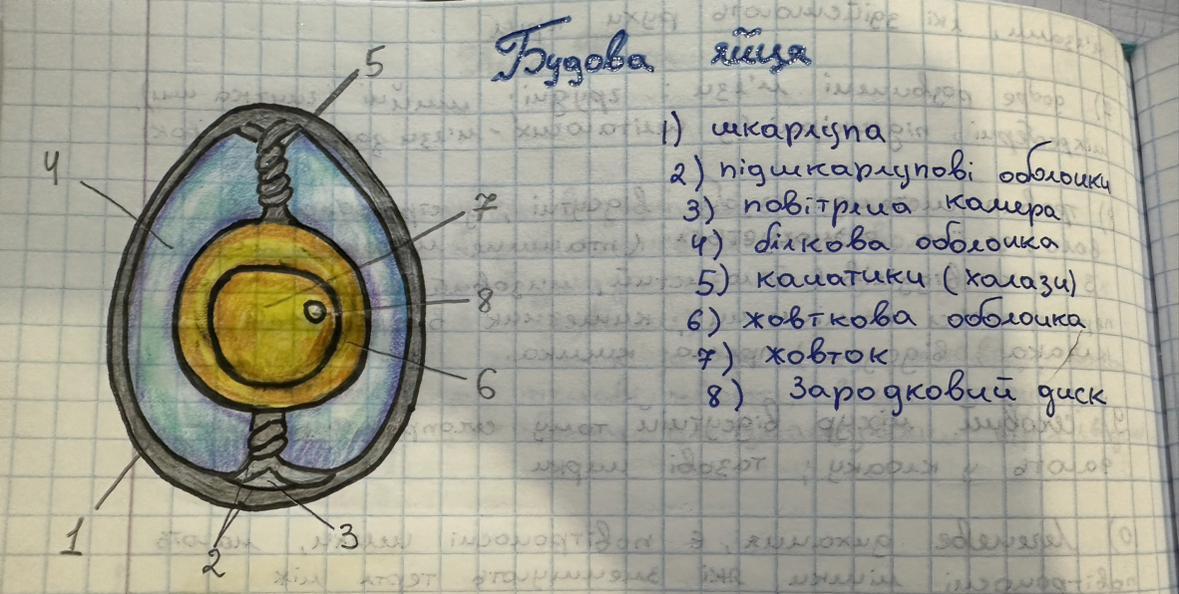 Будова яйця
1) шкарлупа
2) підшкарлупові оболонки
3) повітряна камера
4) білкова оболонка
5) канатики (халази)
6) жовткова оболонка
7) жовток
8) Зародковий диск
5
4
7
8
6
1
2
3